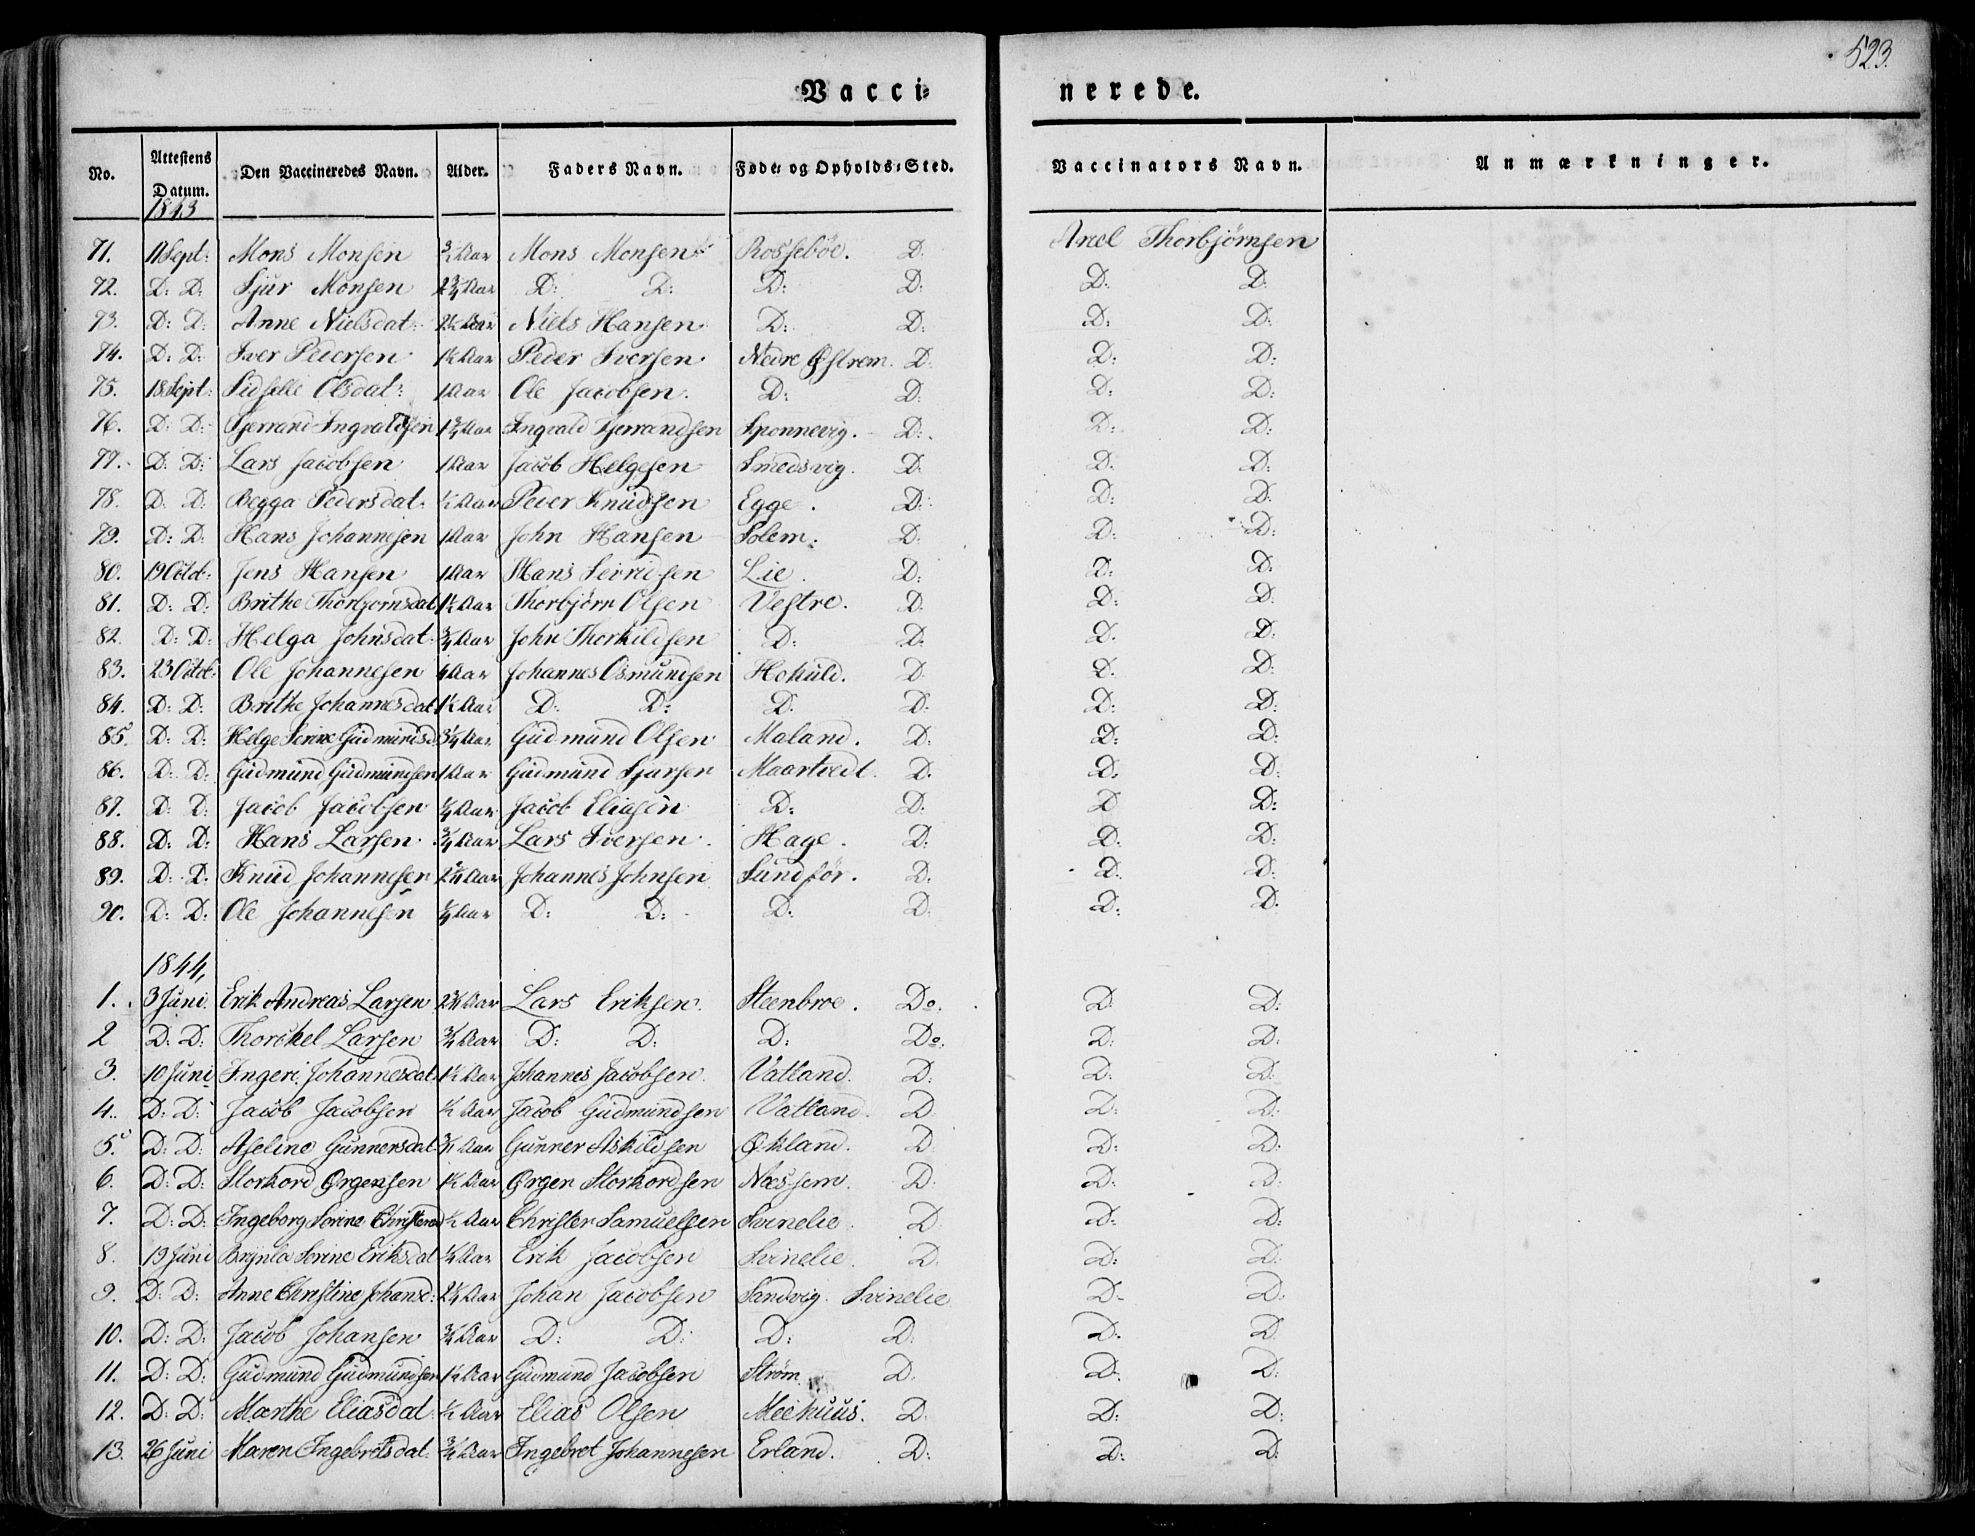 523.
Vacci= nerede.
No. Attestens Datum. Den Vaccineredes Navn. Alder. Faders Navn. Føde= og Opholds=Sted. Vaccinators Navn. Anmærkninger.
1843
71. 11 Sept: Mons Monsen ¾ Aar Mons Monsen Rossebøe. D. Axel Thorbjørnsen
72. D: D: Sjur Monsen 2¾ Aar D: D: D: D: D: D:
73. D: D: Anne Nielsdat: Aar Niels Hansen D: D: D: D:
74. D: D: Iver Pedersen Aar Peder Iversen Nedre Østrem. D. D: D:
75. 18 Sept: Sidselle Olsdat: 1 Aar Ole Jacobsen. D: D: D: D:
76. D: D: Tjerrand Ingvaldsen 1¾ Aar Ingvald Tjerrandsen Sponnevig. D: D: D:
77. D: D: Lars Jacobsen 1 Aar Jacob Helgesen Smedsvig. D: D: D:
78. D. D: Begga Pedersdat. Aar Peder Knudsen Egge. D: D: D:
79. D: D: Hans Johannesen 1 Aar John Hansen Solem. D: D: D:
80. 19 Octob: Jens Hansen 1 Aar Hans Sevridsen Lie. D: D: D:
81. D: D: Brithe Thorbjornsdat 1½ Aar Thorbjörn Olsen Vestre. D. D: D.
82. D: D: Helga Johnsdat. ¾ Aar John Thorkildsen D: D. D. D:
83. 23 Octob: Ole Johannesen 4 Aar Johannes Osmundsen Hokuld. D. D. D:
84. D: D: Brithe Johannesdat Aar D: D: D. D: D: D:
85. D: D: Helge Serine Gudmundsd ¾ Aar Gudmund Olsen Moland. D: D: D:
86. D: D: Gudmund Gudmundsen 1 Aar Gudmund Sjursen Maartvedt. D. D. D:
87. D: D: Jacob Jacobsen Aar Jacob Eliasen D: D: D D:
88. D: D: Hans Larsen ¾ Aar Lars Iversen. Hage. D: D: D:
89. D: D. Knud Johannesen Aar Johannes Johnsen Sundför. D. D. D:
90. D: D: Ole Johannesen ¾ Aar D: D: D: D: D: D.
1844,
1. 3 Juni Erik Andreas Larsen 2¾ Aar Lars Eriksen. Steenbroe. Do. D. D:
2 D: D: Thorckel Larsen ¾ Aar D: D: D: Do. D: D.
3. 10 Juni Ingeri Johannesdat. Aar Johannes Jacobsen. Vatland. D: D: D.
4. D: D: Jacob Jacobsen Aar Jacob Gudmundsen Vatland. D. D: D:
5. D: D: Aseline Gunnersdat. ¾ Aar Gunner Askildsen Økland. D. D: D:
6. D: D: Storkord Ørgensen Aar Ørgen Storkordsen Næssem. D: D: D:
7. D: D: Ingeborg Sorine Aar Christer Samuelsen Svinelie. D. D: D:
8. 19 Juni Brynla Serine Eriksdat Aar Erik Jacobsen Svinelie. D. D: D:
9. D: D: Anne Christine Johansd: Aar Johan Jacobsen Sandvig. Svinelie D: D:
10. D: D: Jacob Johansen ¾ Aar D: D: D: D. D: D.
11. D: D: Gudmund Gudmundsen Aar Gudmund Jacobsen Strøm D. D: D:
12. D: D: Marthe Eliasdat. Aar Elias Olsen Meehuus. D. D: D:
13. 26 Juni Maren Ingebretsdat. ¾ Aar Ingebret Johannesen Erland. D: D: D: